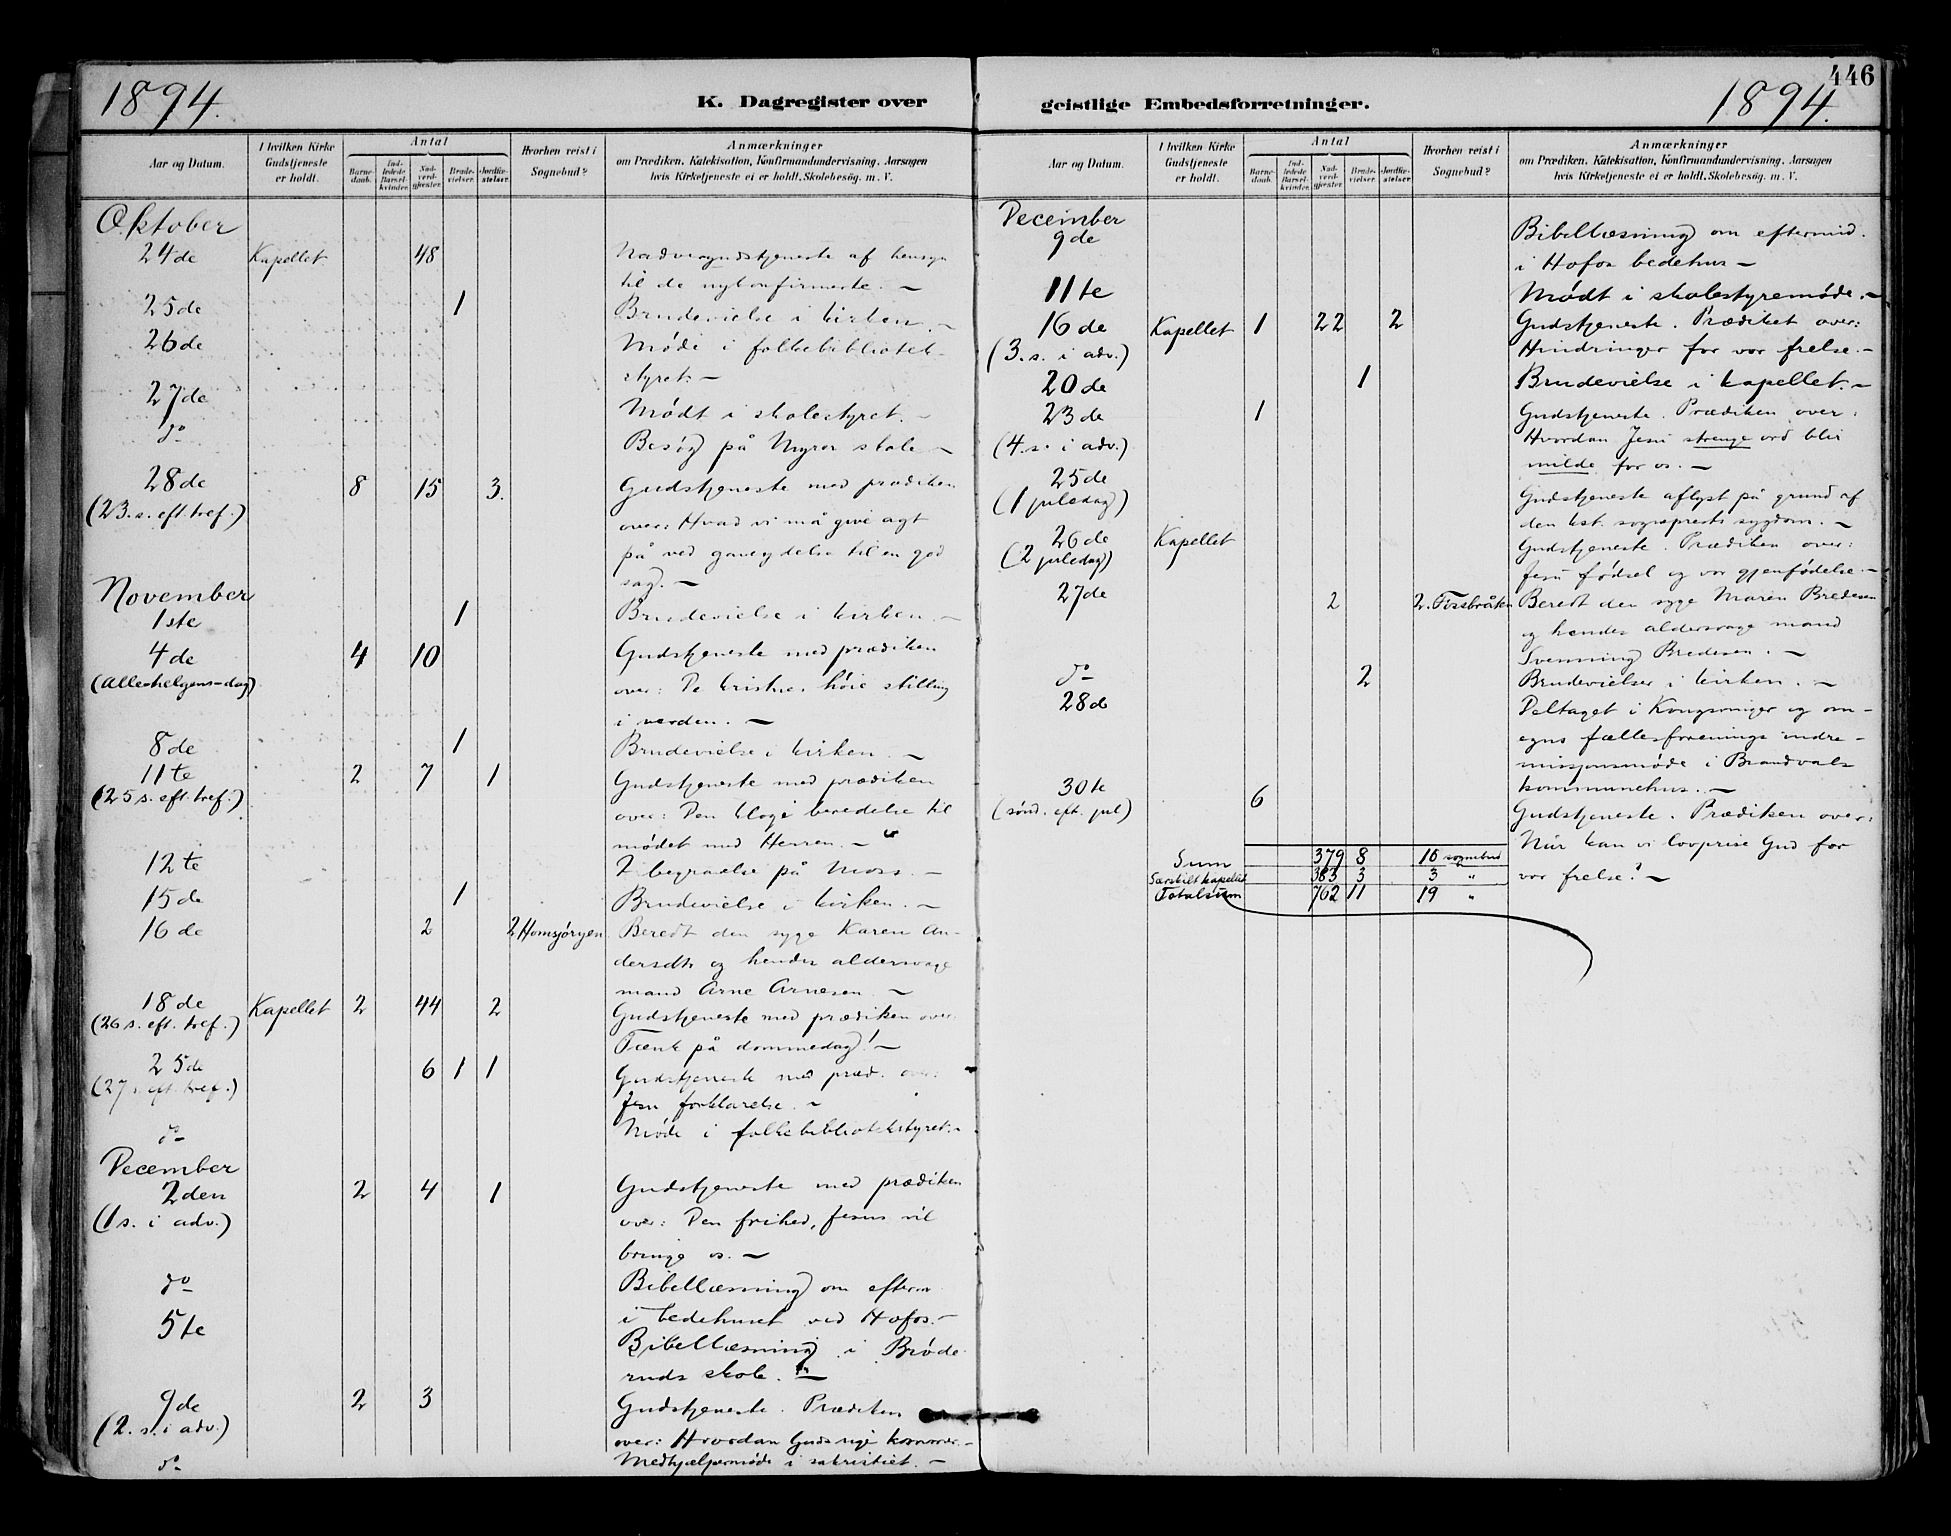 446
1894.
K. Dagregister over
geistlige Embedsforretninger.
1894.
Aar og Datum.
I hvilken Kirke Gudstjeneste er holdt.
Antal
Barnedaab.
Indledede Barselkvinder.
Nadverdgjester.
Brudevielser.
Jordfæstelser.
Hvorhen reist i Sognebud?
Anmærkninger
om Prædiken, Katekisation, Konfirmandundervisning, Aarsagen
hvis Kirketjeneste ei er holdt, Skolebesøg. m. V.
Oktober
24de Kapellet 48 Nadvergudstjeneste af hensyn
til de nykonfirmerte. —
25de 1 Brudevielse i kirken. —
26de Møde i folkebibliotek-
styret. —
27de Mødt i skolestyret. —
do Besøg på Myror skole —
28de 8 15 3. Gudstjeneste med prædiken
(23. s. eft. tref.) over: Hvad vi må give agt
på ved gaveydelse til en god
sag. —
November
1ste 1 Brudevielse i kirken. —
4de 4 10 Gudstjeneste med prædiken
(Alle-helgens-dag) over: De kristnes høie stilling
i verden. —
8de 1 Brudevielse i kirken. —
11te 2 7 1 Gudstjeneste med prædiken
(25 s. eft. tref.) over: Den kloge beredelse til
mødet med Herren. —
12te I begravelse på Moss. —
15de 1 Brudevielse i kirken. —
16de 2 2 Homsjørgen Beredt den syge Karen An-
dersdtr og hendes aldersvage
mand Arne Arnesen. —
18de Kapellet 2 44 2 Gudstjeneste med prædiken over:
(26 s. eft. tref.) Tænk på dommedag! —
25de 6 1 1 Gudstjeneste med præd. over:
(27 s. eft. tref.) Jesu forklarelse. —
do Møde i folkebibliotekstyret. —
December
2den 2 4 1 Gudstjeneste med prædiken
(1 s. i adv.) over: Den frihed, Jesus vil
bringe os. —
do Bibellæsning om efterm.
i bedehuset ved Hofos. —
5te Bibellæsning i Brøde-
ruds skole. —
9de 2 3 Gudstjeneste. Prædiken
(2. s. i adv.) over: Hvordan Guds rige kommer. —
do Medhjælpermøde i sakristiet. —
Aar og Datum.
I hvilken Kirke Gudstjeneste er holdt.
Antal
Barnedaab.
Indledede Barselkvinder.
Nadverdgjester.
Brudevielser.
Jordfæstelser.
Hvorhen reist i Sognebud?
Anmærkninger
om Prædiken, Katekisation, Konfirmandundervisning, Aarsagen
hvis Kirketjeneste ei er holdt, Skolebesøg. m. V.
December
9de Bibellæsning om eftermid.
i Hofos bedehus —
11te Mødt i skolestyremøde. —
16de Kapellet 1 22 2 Gudstjeneste. Prædiket over:
(3. s. i adv.) Hindringer for vor frelse. —
20de 1 Brudevielse i kapellet. —
23de 1 Gudstjeneste. Prædiken over:
(4. s. i adv.) Hvordan Jesu strenge ord blir
milde for os. —
25de Gudstjeneste aflyst på grund af
(1 juledag) den kst. sogneprests sygdom. —
26de Kapellet Gudstjeneste. Prædiken over:
(2 juledag) Jesu fødsel og vor gjenfødelse. —
27de 2 2. Fissbråten Beredt den syge Maren Bredesen
og hendes aldersvage mand
Svenning Bredesen. —
do 2 Brudevielser i kirken. —
28de Deltaget i Kongsvinger og om-
egns fællesforenings indre-
missionsmøde i Brandvals
kommunehus. —
30te 6 Gudstjeneste. Prædiken over:
(sønd. eft. jul) Når kan vi lovprise Gud for
vor frelse? —
Sum 379 8 16 sognebud
Særskilt kapellet 383 3 3 "
Totalsum 762 11 19 "